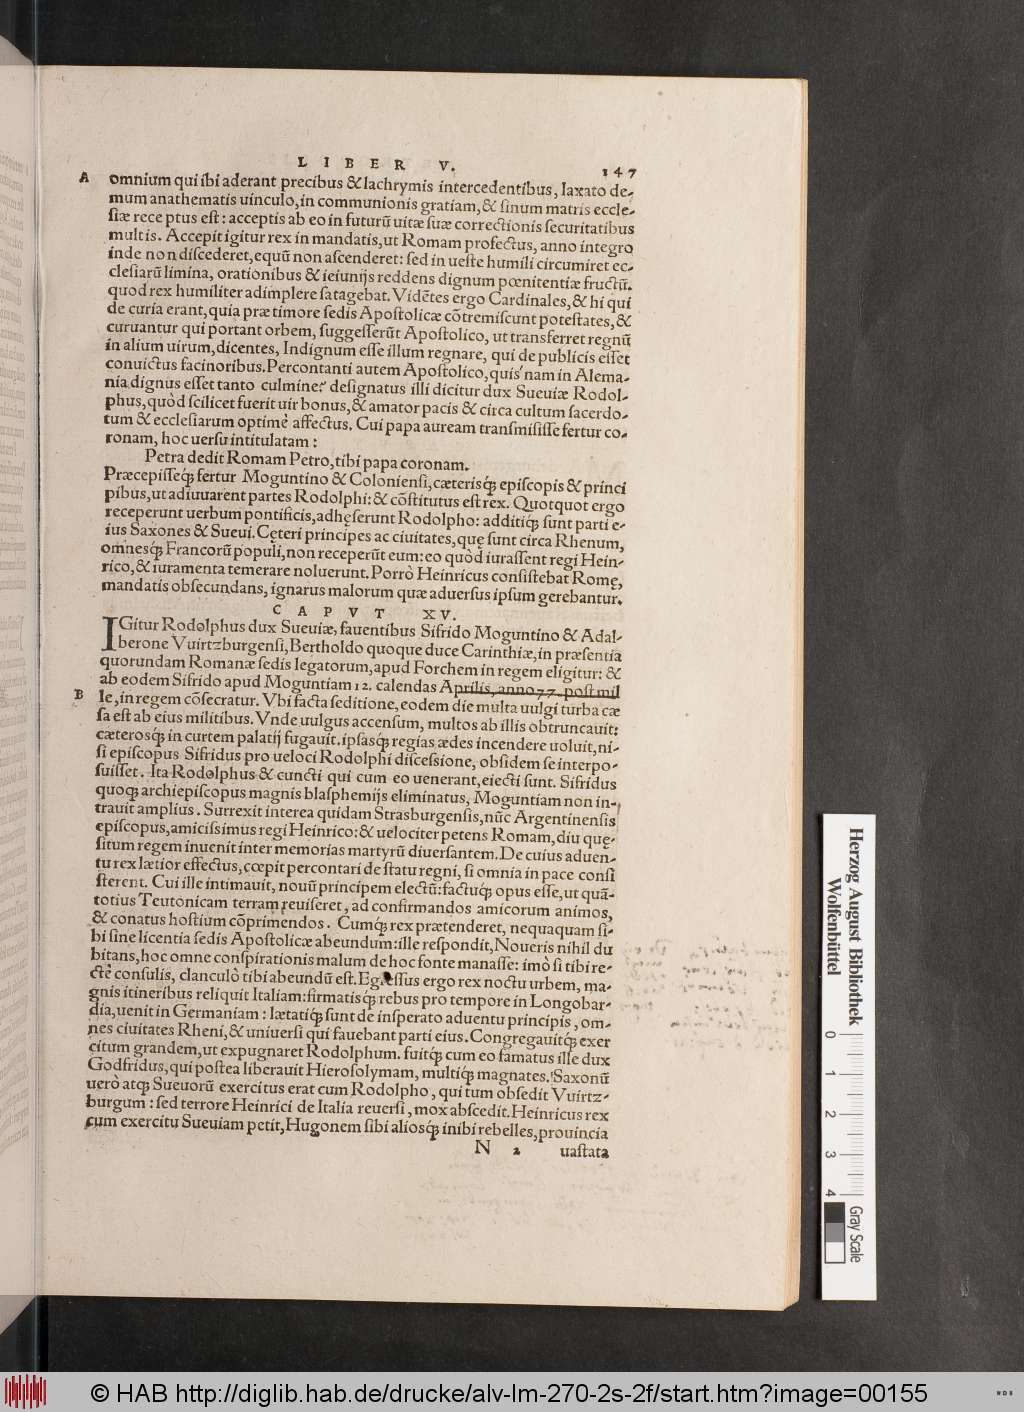 LIBER V. 147
A omnium qui ibi aderant precibus & lachrymis intercedentibus, laxato de-
mum anathematis uinculo, in communionis gratiam, & sinum matris eccle-
siæ receptus est: acceptis ab eo in futurū uitæ suæ correctionis securitatibus
multis. Accepit igitur rex in mandatis, ut Romam profectus, anno integro
inde non discederet, equū non ascenderet: sed in ueste humili circumiret ec-
clesiarū limina, orationibus & ieiunijs reddens dignum pœnitentiæ fructū.
quod rex humiliter adimplere satagebat. Vidētes ergo Cardinales, & hi qui
de curia erant, quia præ timore sedis Apostolicæ cōtremiscunt potestates, &
curuantur qui portant orbem, suggesserūt Apostolico, ut transferret regnū
in alium uirum, dicentes, Indignum esse illum regnare, qui de publicis esset
conuictus facinoribus. Percontanti autem Apostolico, quisnam in Alema-
nia dignus esset tanto culmine? designatus illi dicitur dux Sueuiæ Rodol-
phus, quòd scilicet fuerit uir bonus, & amator pacis & circa cultum sacerdo-
tum & ecclesiarum optimè affectus. Cui papa auream transmisisse fertur co-
ronam, hoc uersu intitulatam:
Petra dedit Romam Petro, tibi papa coronam.
Præcepisseq́; fertur Moguntino & Coloniensi, cæterisq́; episcopis & princi
pibus, ut adiuuarent partes Rodolphi: & cōstitutus est rex. Quotquot ergo
receperunt uerbum pontificis, adhęserunt Rodolpho: additiq́; sunt parti e-
ius Saxones & Sueui. Cęteri principes ac ciuitates, quę sunt circa Rhenum,
omnesq́; Francorū populi, non receperūt eum: eo quòd iurassent regi Hein-
rico, & iuramenta temerare noluerunt. Porrò Heinricus consistebat Romę,
mandatis obsecundans, ignarus malorum quæ aduersus ipsum gerebantur.
CAPVT XV.
IGitur Rodolphus dux Sueuiæ, fauentibus Sifrido Moguntino & Adal-
berone Vuirtzburgensi, Bertholdo quoque duce Carinthiæ, in præsentia
quorundam Romanæ sedis legatorum, apud Forchem in regem eligitur: &
ab eodem Sifrido apud Moguntiam 12. calendas Aprilis, anno 77. post mil
B le, in regem cōsecratur. Vbi facta seditione, eodem die multa uulgi turba cæ
sa est ab eius militibus. Vnde uulgus accensum, multos ab illis obtruncauit:
cæterosq́; in curtem palatij fugauit. ipsasq́; regias ædes incendere uoluit, ni-
si episcopus Sifridus pro ueloci Rodolphi discessione, obsidem se interpo-
suisset. Ita Rodolphus & cuncti qui cum eo uenerant, eiecti sunt. Sifridus
quoq; archiepiscopus magnis blasphemijs eliminatus, Moguntiam non in-
trauit amplius. Surrexit interea quidam Strasburgensis, nūc Argentinensis
episcopus, amicissimus regi Heinrico: & uelociter petens Romam, diu quę-
situm regem inuenit inter memorias martyrū diuersantem. De cuius aduen-
tu rex lætior effectus, cœpit percontari de statu regni, si omnia in pace consi
sterent. Cui ille intimauit, nouū principem electū: factuq́; opus esse, ut quā-
totius Teutonicam terram reuiseret, ad confirmandos amicorum animos,
& conatus hostium cōprimendos. Cumq́; rex prætenderet, nequaquam si-
bi sine licentia sedis Apostolicæ abeundum: ille respondit, Noueris nihil du
bitans, hoc omne conspirationis malum de hoc fonte manasse: imò si tibi re-
ctè consulis, clanculò tibi abeundū est. Egressus ergo rex noctu urbem, ma-
gnis itineribus reliquit Italiam: firmatisq́; rebus pro tempore in Longobar-
dia, uenit in Germaniam: lætatiq́; sunt de insperato aduentu principis, om-
nes ciuitates Rheni, & uniuersi qui fauebant parti eius. Congregauitq́; exer
citum grandem, ut expugnaret Rodolphum. fuitq́; cum eo famatus ille dux
Godfridus, qui postea liberauit Hierosolymam, multiq́; magnates. Saxonū
uerò atq; Sueuorū exercitus erat cum Rodolpho, qui tum obsedit Vuirtz-
burgum: sed terrore Heinrici de Italia reuersi, mox abscedit. Heinricus rex
cum exercitu Sueuiam petit, Hugonem sibi aliosq́; inibi rebelles, prouincia
N 2 uastata
Herzog August Bibliothek
Wolfenbüttel
0 1 2 3 4
Gray Scale
© HAB http://diglib.hab.de/drucke/alv-lm-270-2s-2f/start.htm?image=00155